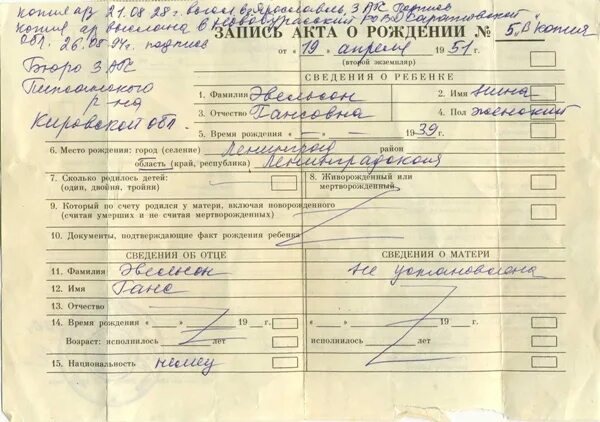 копия аз 21.08.28 г. высл в г Ярославль, ЗАГС подпись
копия аз выслана в Новобурасский РОВД Саратовской
обл. 26.08.94 г. подпись
ЗАПИСЬ АКТА О РОЖДЕНИИ № 5 „В" копия
от « 19 » апреля 1951 г.
(второй экземпляр)
Бюро ЗАГС
Кировской обл.
р-на
СВЕДЕНИЯ О РЕБЕНКЕ
1. Фамилия Эвельсон 2. Имя Нина
3. Отчество Гансовна 4. Пол женский
5. Время рождения « — » — 1939 г.
6. Место рождения: город (селение) Ленинград район
область (край, республика) Ленинградская
7. Сколько родилось детей: (один, двойня, тройня)
8. Живорожденный или мертворожденный
9. Который по счету родился у матери, включая новорожденного
(считая умерших и не считая мертворожденных)
10. Документы, подтверждающие факт рождения ребенка
СВЕДЕНИЯ ОБ ОТЦЕ СВЕДЕНИЯ О МАТЕРИ
11. Фамилия Эвельсон не установлена
12. Имя Ганс
13. Отчество
14. Время рождения « » 19 г. « » 19 г.
Возраст: исполнилось лет исполнилось лет
15. Национальность немец